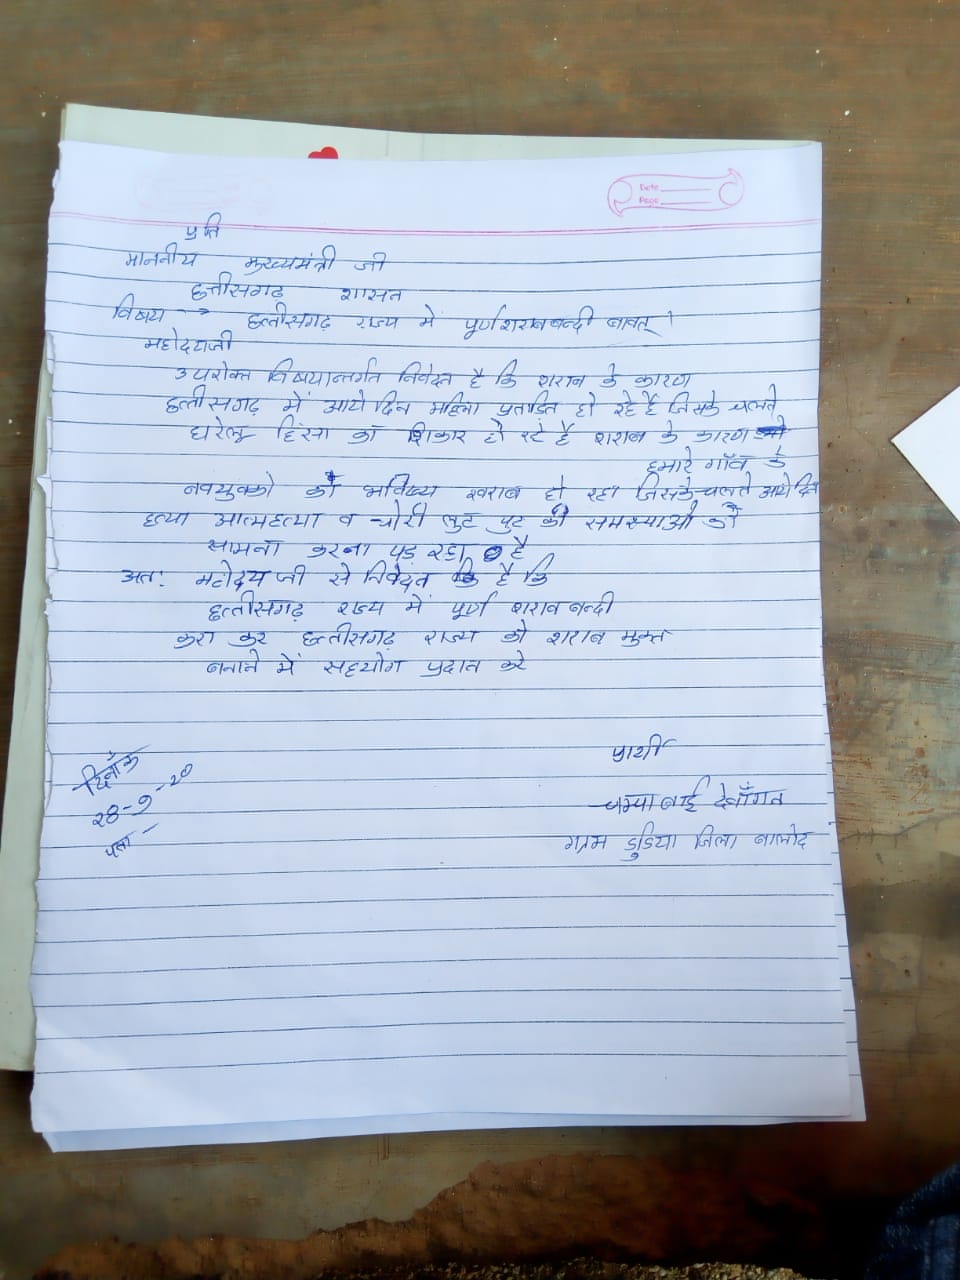 Date
Page
प्रति
माननीय मुख्यमंत्री जी
छत्तीसगढ़ शासन
विषय → छत्तीसगढ़ राज्य में पूर्ण शराबबन्दी बावत्।
महोदयजी
उपरोक्त विषयान्तर्गत निवेदन है कि शराब के कारण
छत्तीसगढ़ में आये दिन महिला प्रताड़ित हो रहे है जिसके चलते
घरेलू हिंसा का शिकार हो रहे है शराब के कारण
हमारे गाँव के
नवयुवको का भविष्य खराब हो रहा जिसके चलते आये दिन
हत्या आत्महत्या व चोरी लुट पुट की समस्याओं का
सामना करना पड़ रहा है
अतः महोदय जी से निवेदन है कि
छत्तीसगढ़ राज्य में पूर्ण शराब बन्दी
करा कर छत्तीसगढ़ राज्य को शराब मुक्त
बनाने में सहयोग प्रदान करे
दिनाँक
28-9-20
प्रार्थी
चम्पा बाई देवाँगन
ग्राम डुडिया जिला बालोद